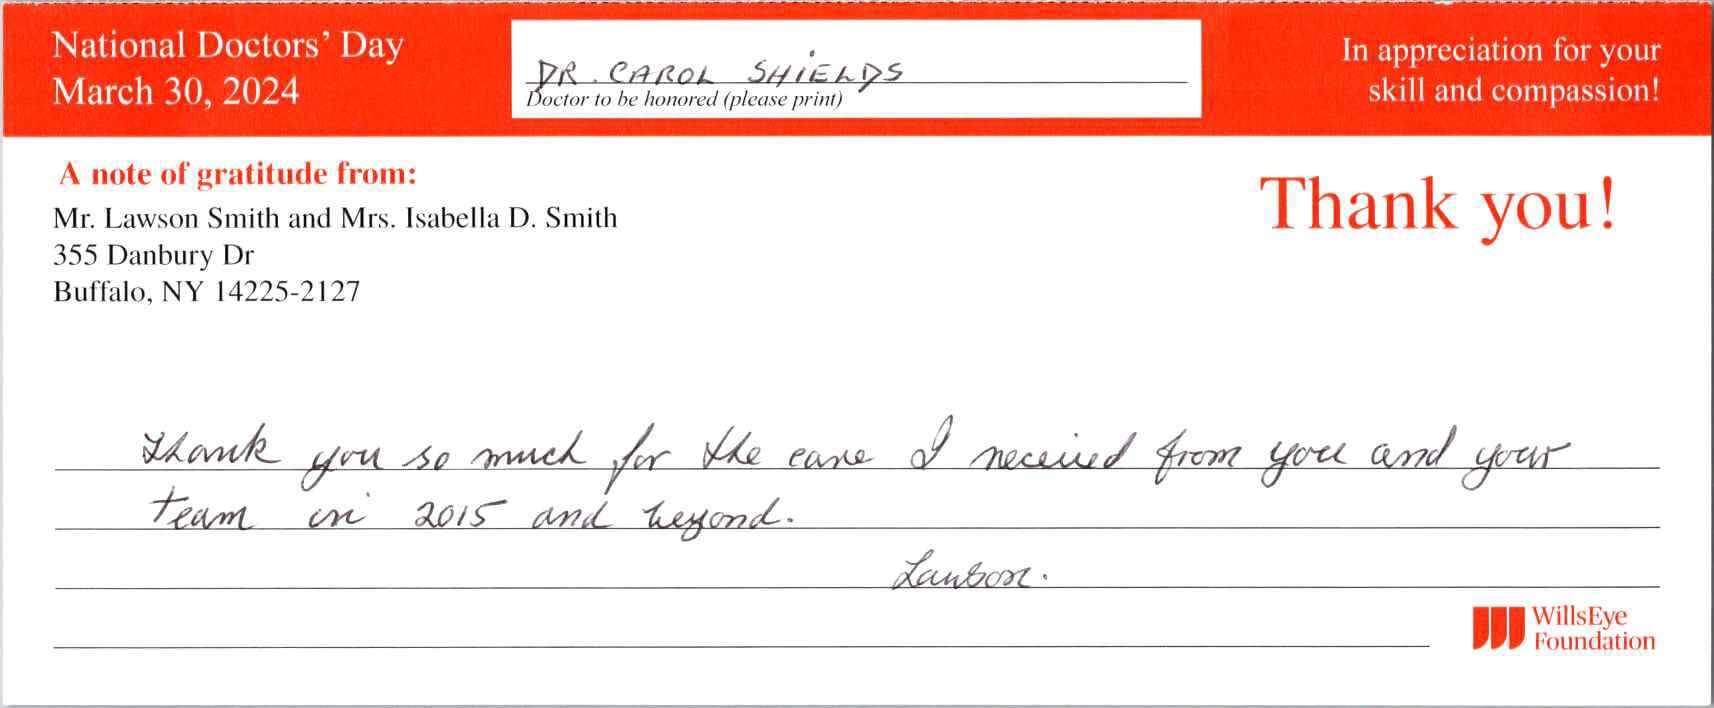 National Doctors' Day
March 30, 2024
DR. CAROL SHIELDS
Doctor to be honored (please print)
In appreciation for your
skill and compassion!
A note of gratitude from:
Mr. Lawson Smith and Mrs. Isabella D. Smith
355 Danbury Dr
Buffalo, NY 14225-2127
Thank you!
Thank you so much for the care I received from you and your
team in 2015 and beyond.
Lawson.
WillsEye
Foundation